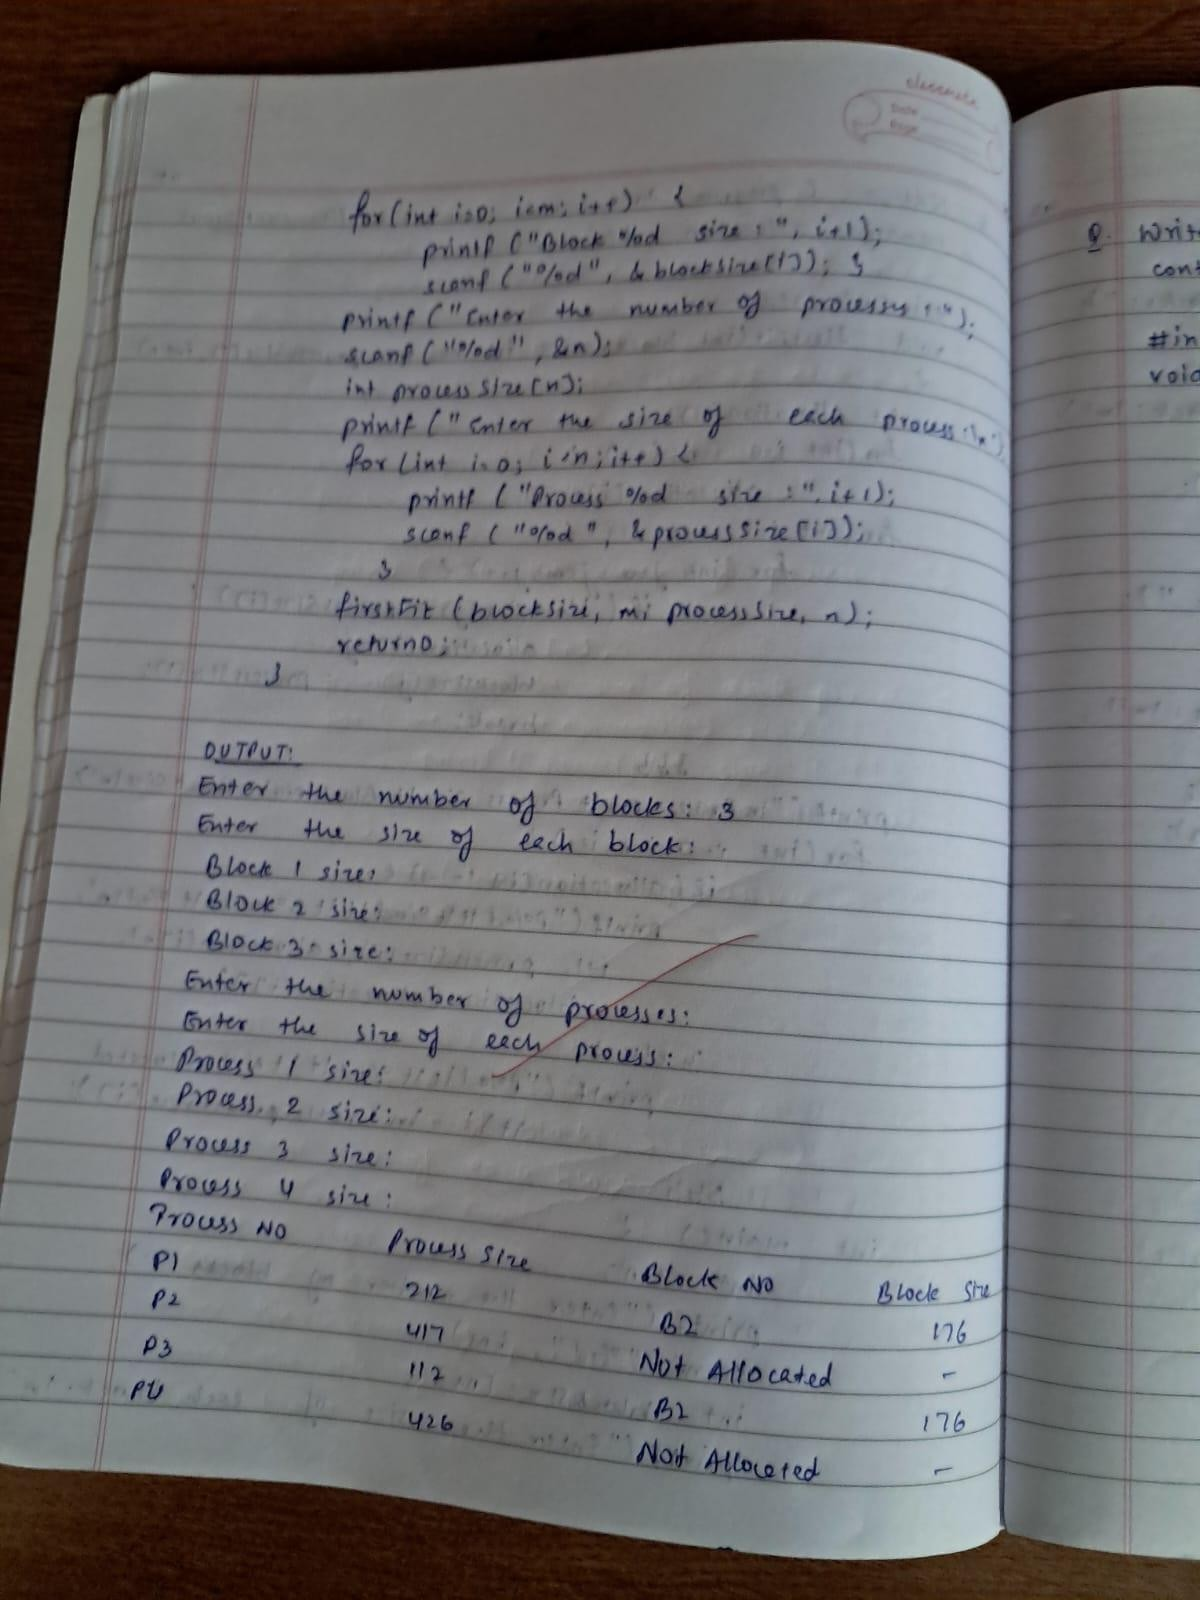 classmate
Date
Page
for(int i=0; i<m; i++) {
printf ("Block %d size : ", i+1);
scanf ("%d", & blocksize[i]); }
printf ("Enter the number of processes : ");
scanf ("%d", &n);
int process size [n];
printf (" Enter the size of each process :\n");
for (int i=0; i<n; i++) {
printf ( "Process %d size : ", i+1);
scanf ( "%d ", & processSize[i]);
}
firstFit (blocksize, m, processSize, n);
return 0;
}
OUTPUT:
Enter the number of blocks: 3
Enter the size of each block:
Block 1 size:
Block 2 size:
Block 3 size:
Enter the number of processes:
Enter the size of each process:
Process 1 size:
Process 2 size:
Process 3 size:
Process 4 size:
Process NO Process Size Block NO Block Size
P1 212 B2 176
P2 417 Not Allocated -
P3 112 B2 176
P4 426 Not Allocated -
Q. Writ
cont
#in
void